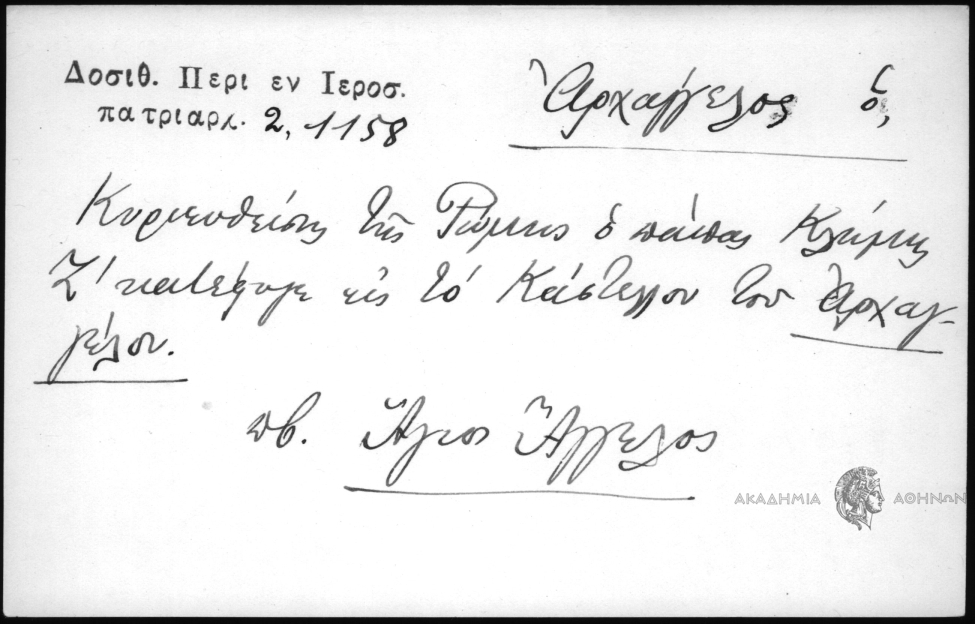 Δοσιθ. Περι εν Ιεροσ.
πατριαρχ. 2, 1158
Ἀρχάγγελος ὁ,
Κυριευθείσης τῆς Ῥώμης ὁ πάπας Κλήμης
Ζ' κατέφυγε εἰς τό Κάστελλον τοῦ Ἀρχαγ-
γέλου.
πβ. Ἅγιος Ἄγγελος
ΑΚΑΔΗΜΙΑ ΑΘΗΝΩΝ